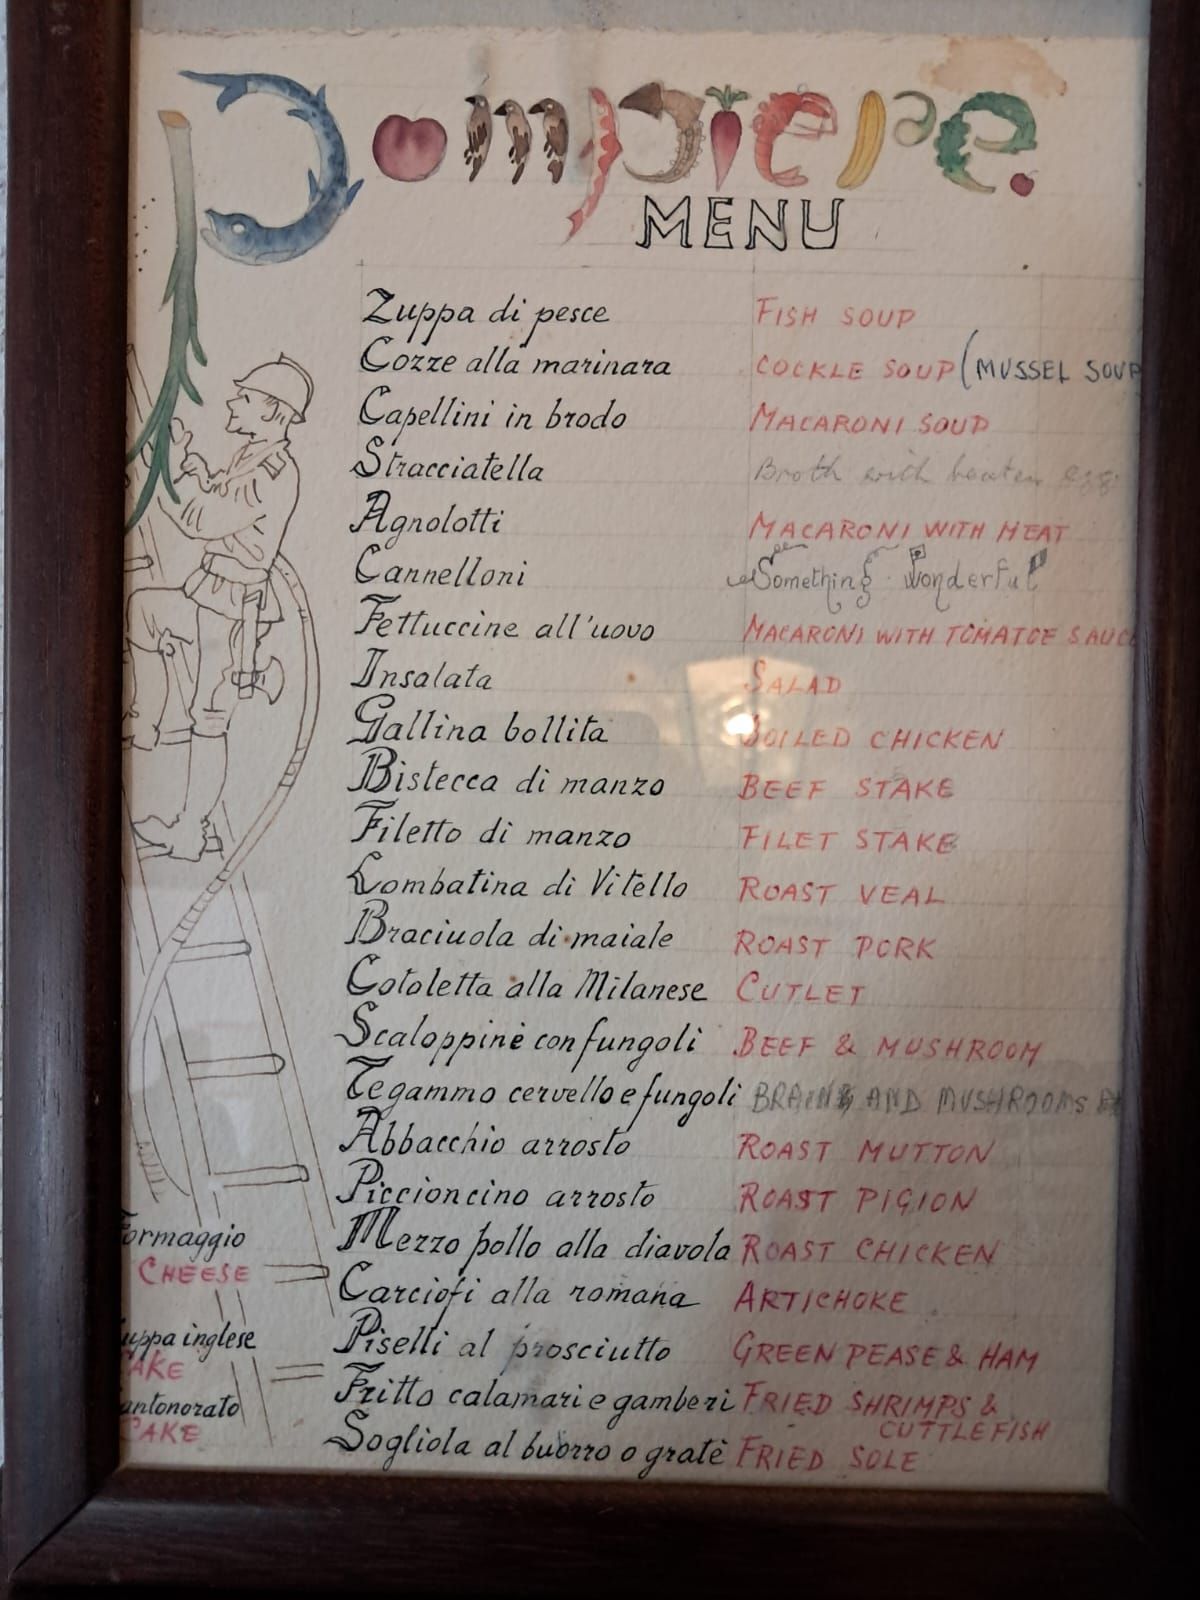 Pompiere
MENU
Zuppa di pesce FISH SOUP
Cozze alla marinara COCKLE SOUP (MUSSEL SOUP
Capellini in brodo MACARONI SOUP
Stracciatella Broth with beaten egg
Agnolotti MACARONI WITH MEAT
Cannelloni Something Wonderful
Fettuccine all'uovo MACARONI WITH TOMATOE SAUCE
Insalata SALAD
Gallina bollita BOILED CHICKEN
Bistecca di manzo BEEF STAKE
Filetto di manzo FILET STAKE
Lombatina di Vitello ROAST VEAL
Braciuola di maiale ROAST PORK
Cotoletta alla Milanese CUTLET
Scaloppine con fungoli BEEF & MUSHROOM
Tegammo cervello e fungoli BRAINS AND MUSHROOMS
Abbacchio arrosto ROAST MUTTON
Piccioncino arrosto ROAST PIGION
Mezzo pollo alla diavola ROAST CHICKEN
Carciofi alla romana ARTICHOKE
Piselli al prosciutto GREEN PEASE & HAM
Fritto calamari e gamberi FRIED SHRIMPS &
CUTTLEFISH
Sogliola al buorro o gratè FRIED SOLE
Formaggio
CHEESE
uppa inglese
CAKE
antonorato
CAKE